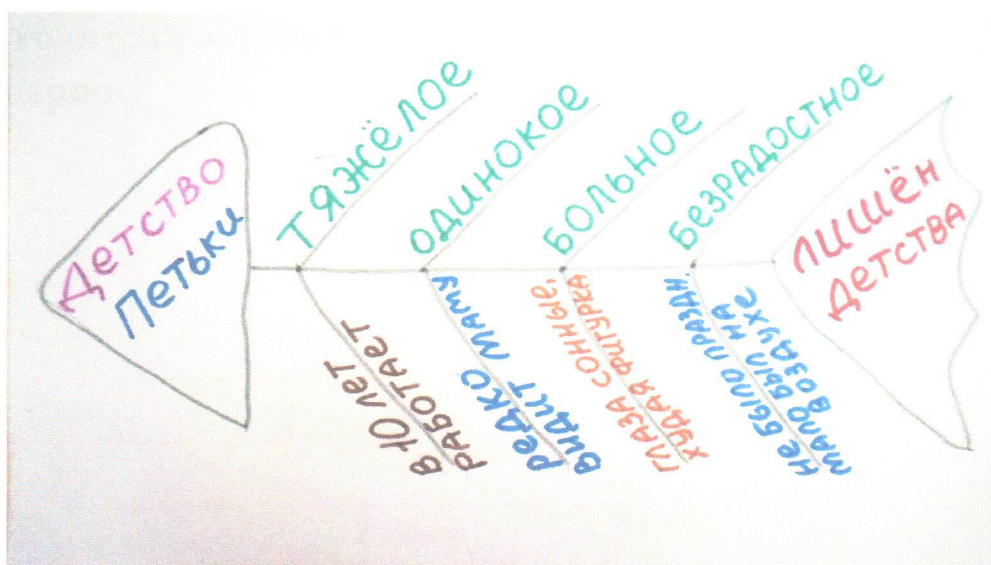 Детство
Петьки
ТЯЖЁЛОЕ
ОДИНОКОЕ
БОЛЬНОЕ
БЕЗРАДОСТНОЕ
В 10 ЛЕТ
РАБОТАЕТ
РЕДКО
ВИДИТ МАМУ
ГЛАЗА СОННЫЕ,
ХУДАЯ ФИГУРКА
НЕ БЫЛО ПРАЗДН.
МАЛО БЫЛ НА
ВОЗДУХЕ
ЛИШЁН
ДЕТСТВА